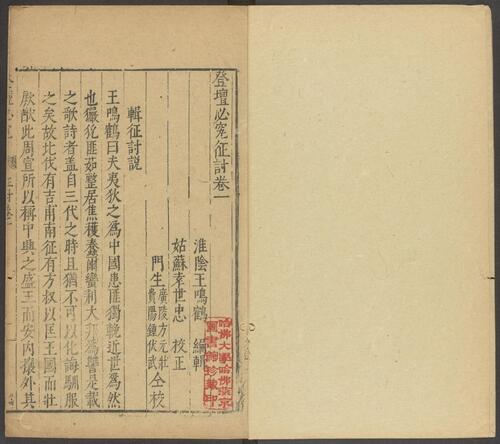 登壇必究征討卷一
淮陰王鳴鶴 編輯
姑蘇袁世忠 校正
門生廣陵方元壯
貴陽鍾伏武仝校
輯征討說
王鳴鶴曰夫夷狄之為中國患匪獨輓近世為然
也玁狁匪茹整居焦穫蠢爾蠻荊大邦為讐是載
之歌詩者蓋自三代之時且猶不可以化誨馴服
之矣故北伐有吉甫南征有方叔以匡王國而壯
厥猷此周宣所以稱中興之盛王而安內攘外其
哈佛大學哈佛燕京
圖書館珍藏印